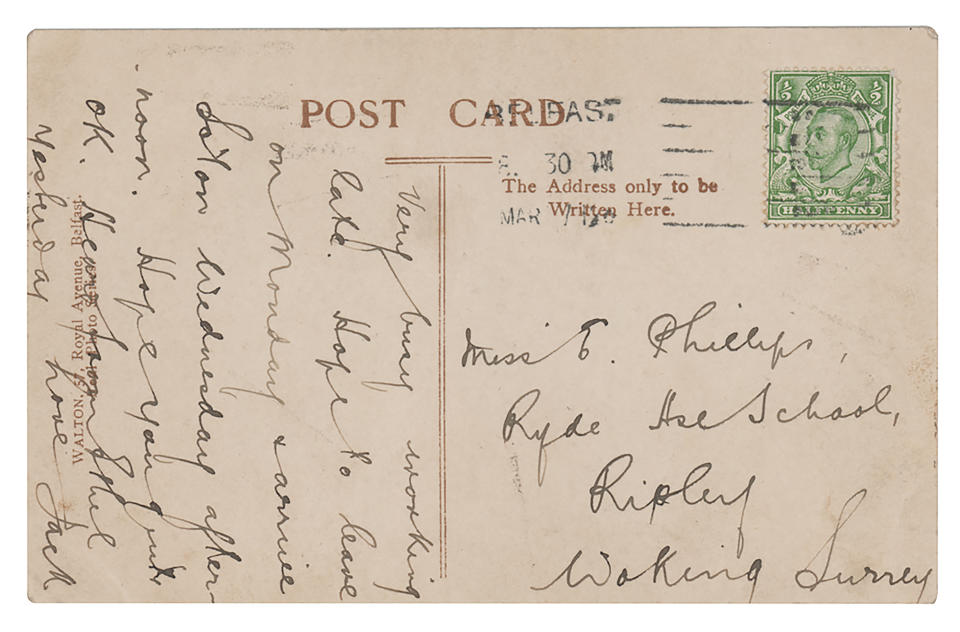 POST CARD
BELFAST
30 PM
MAR
½ ½
HALFPENNY
The Address only to be
Written Here.
Very busy working
late. Hope to leave
on Monday & arrive
So'ton Wednesday after-
noon. Hope you quite
OK. Heard from Ethel
yesterday Love Jack
Miss E. Phillips,
Ryde Hse School,
Ripley
Woking Surrey
WALTON, 57, Royal Avenue, Belfast.
Real Photo Series